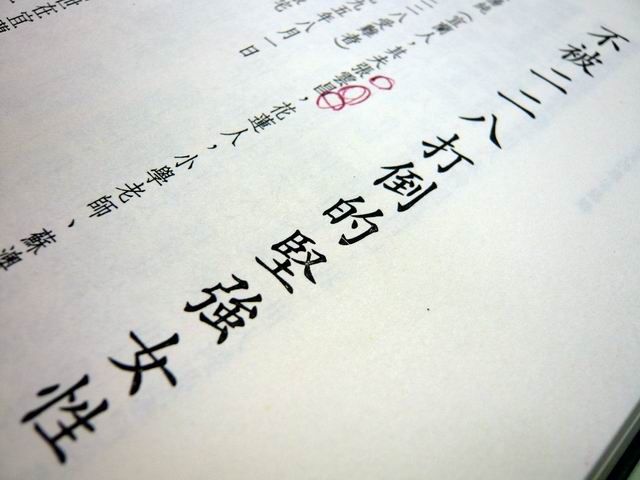 不被二二八打倒的堅強女性
(宜蘭人,其夫張雲昌,花蓮人,小學老師、蘇澳
二二八受難者)
九五年八月一日